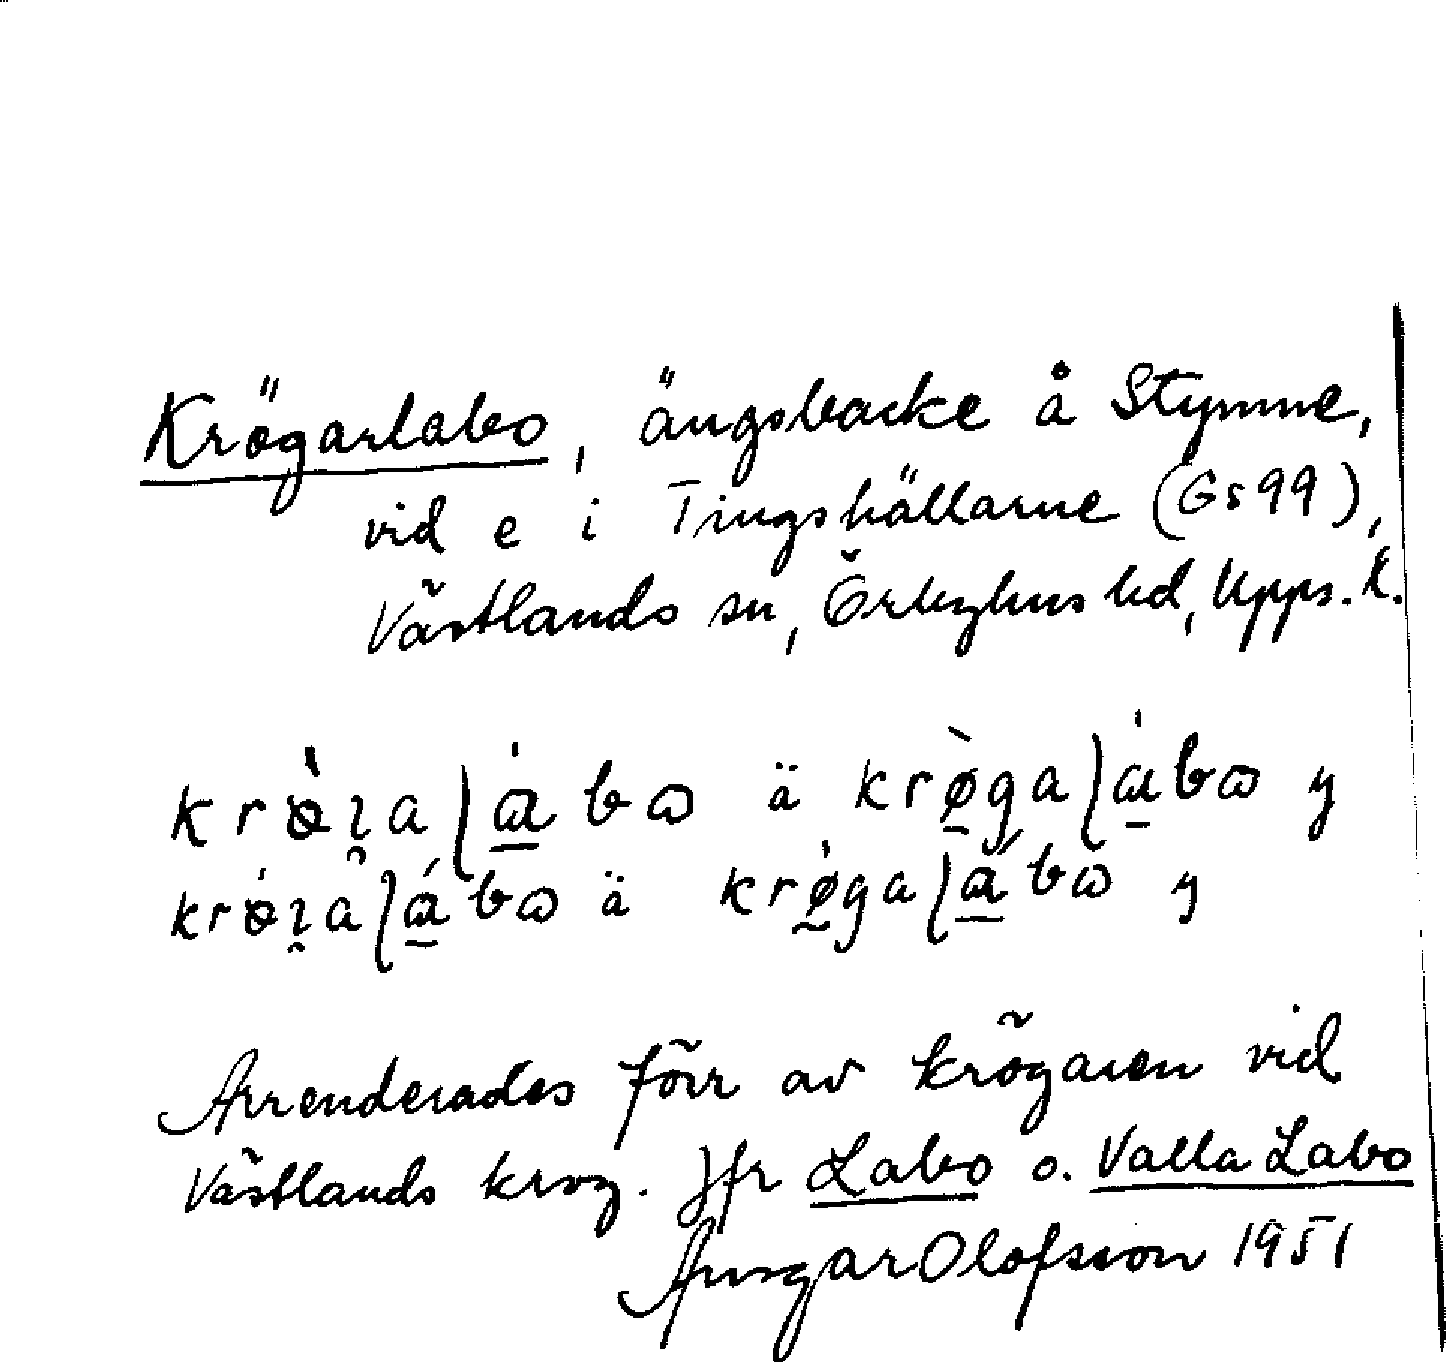 Krögarlabo, ängsbacke å Stymne,
vid e i Tingshällarne (Gs 99),
Västlands sn, Örbyhus hd, Upps. l.
ä y
ä y
Arrenderades förr av krögaren vid
Västlands krog. Jfr Labo o. Valla Labo
Ansgar Olofsson 1951